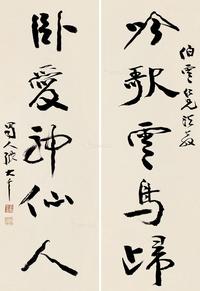 伯雲先生正之
吟歌雲馬歸
卧愛神仙人
蜀人張大千